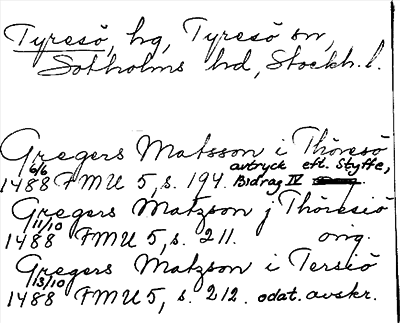 Tyresö, hg, Tyresö sn,
Sotholms hd, Stockh. l.
Gregers Matsson i Thöresö
6/6 avtryck eft. Styffe,
1488 FMU 5, s. 194. Bidrag IV
Gregers Matzson j Thöresiö
11/10
1488 FMU 5, s. 211. orig.
Gregers Matzson i Tersiö
13/10
1488 FMU 5, s. 212. odat. avskr.